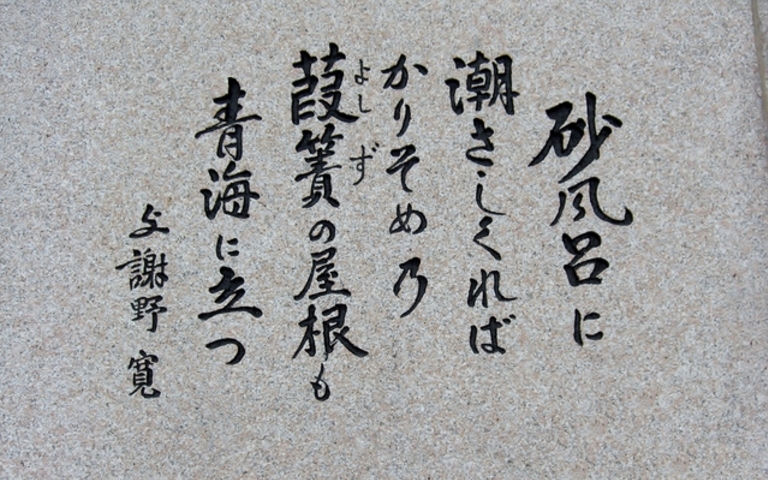 砂風呂に
潮さしくれば
かりそめ乃
葭簀の屋根も
よしず
青海に立つ
与謝野 寛